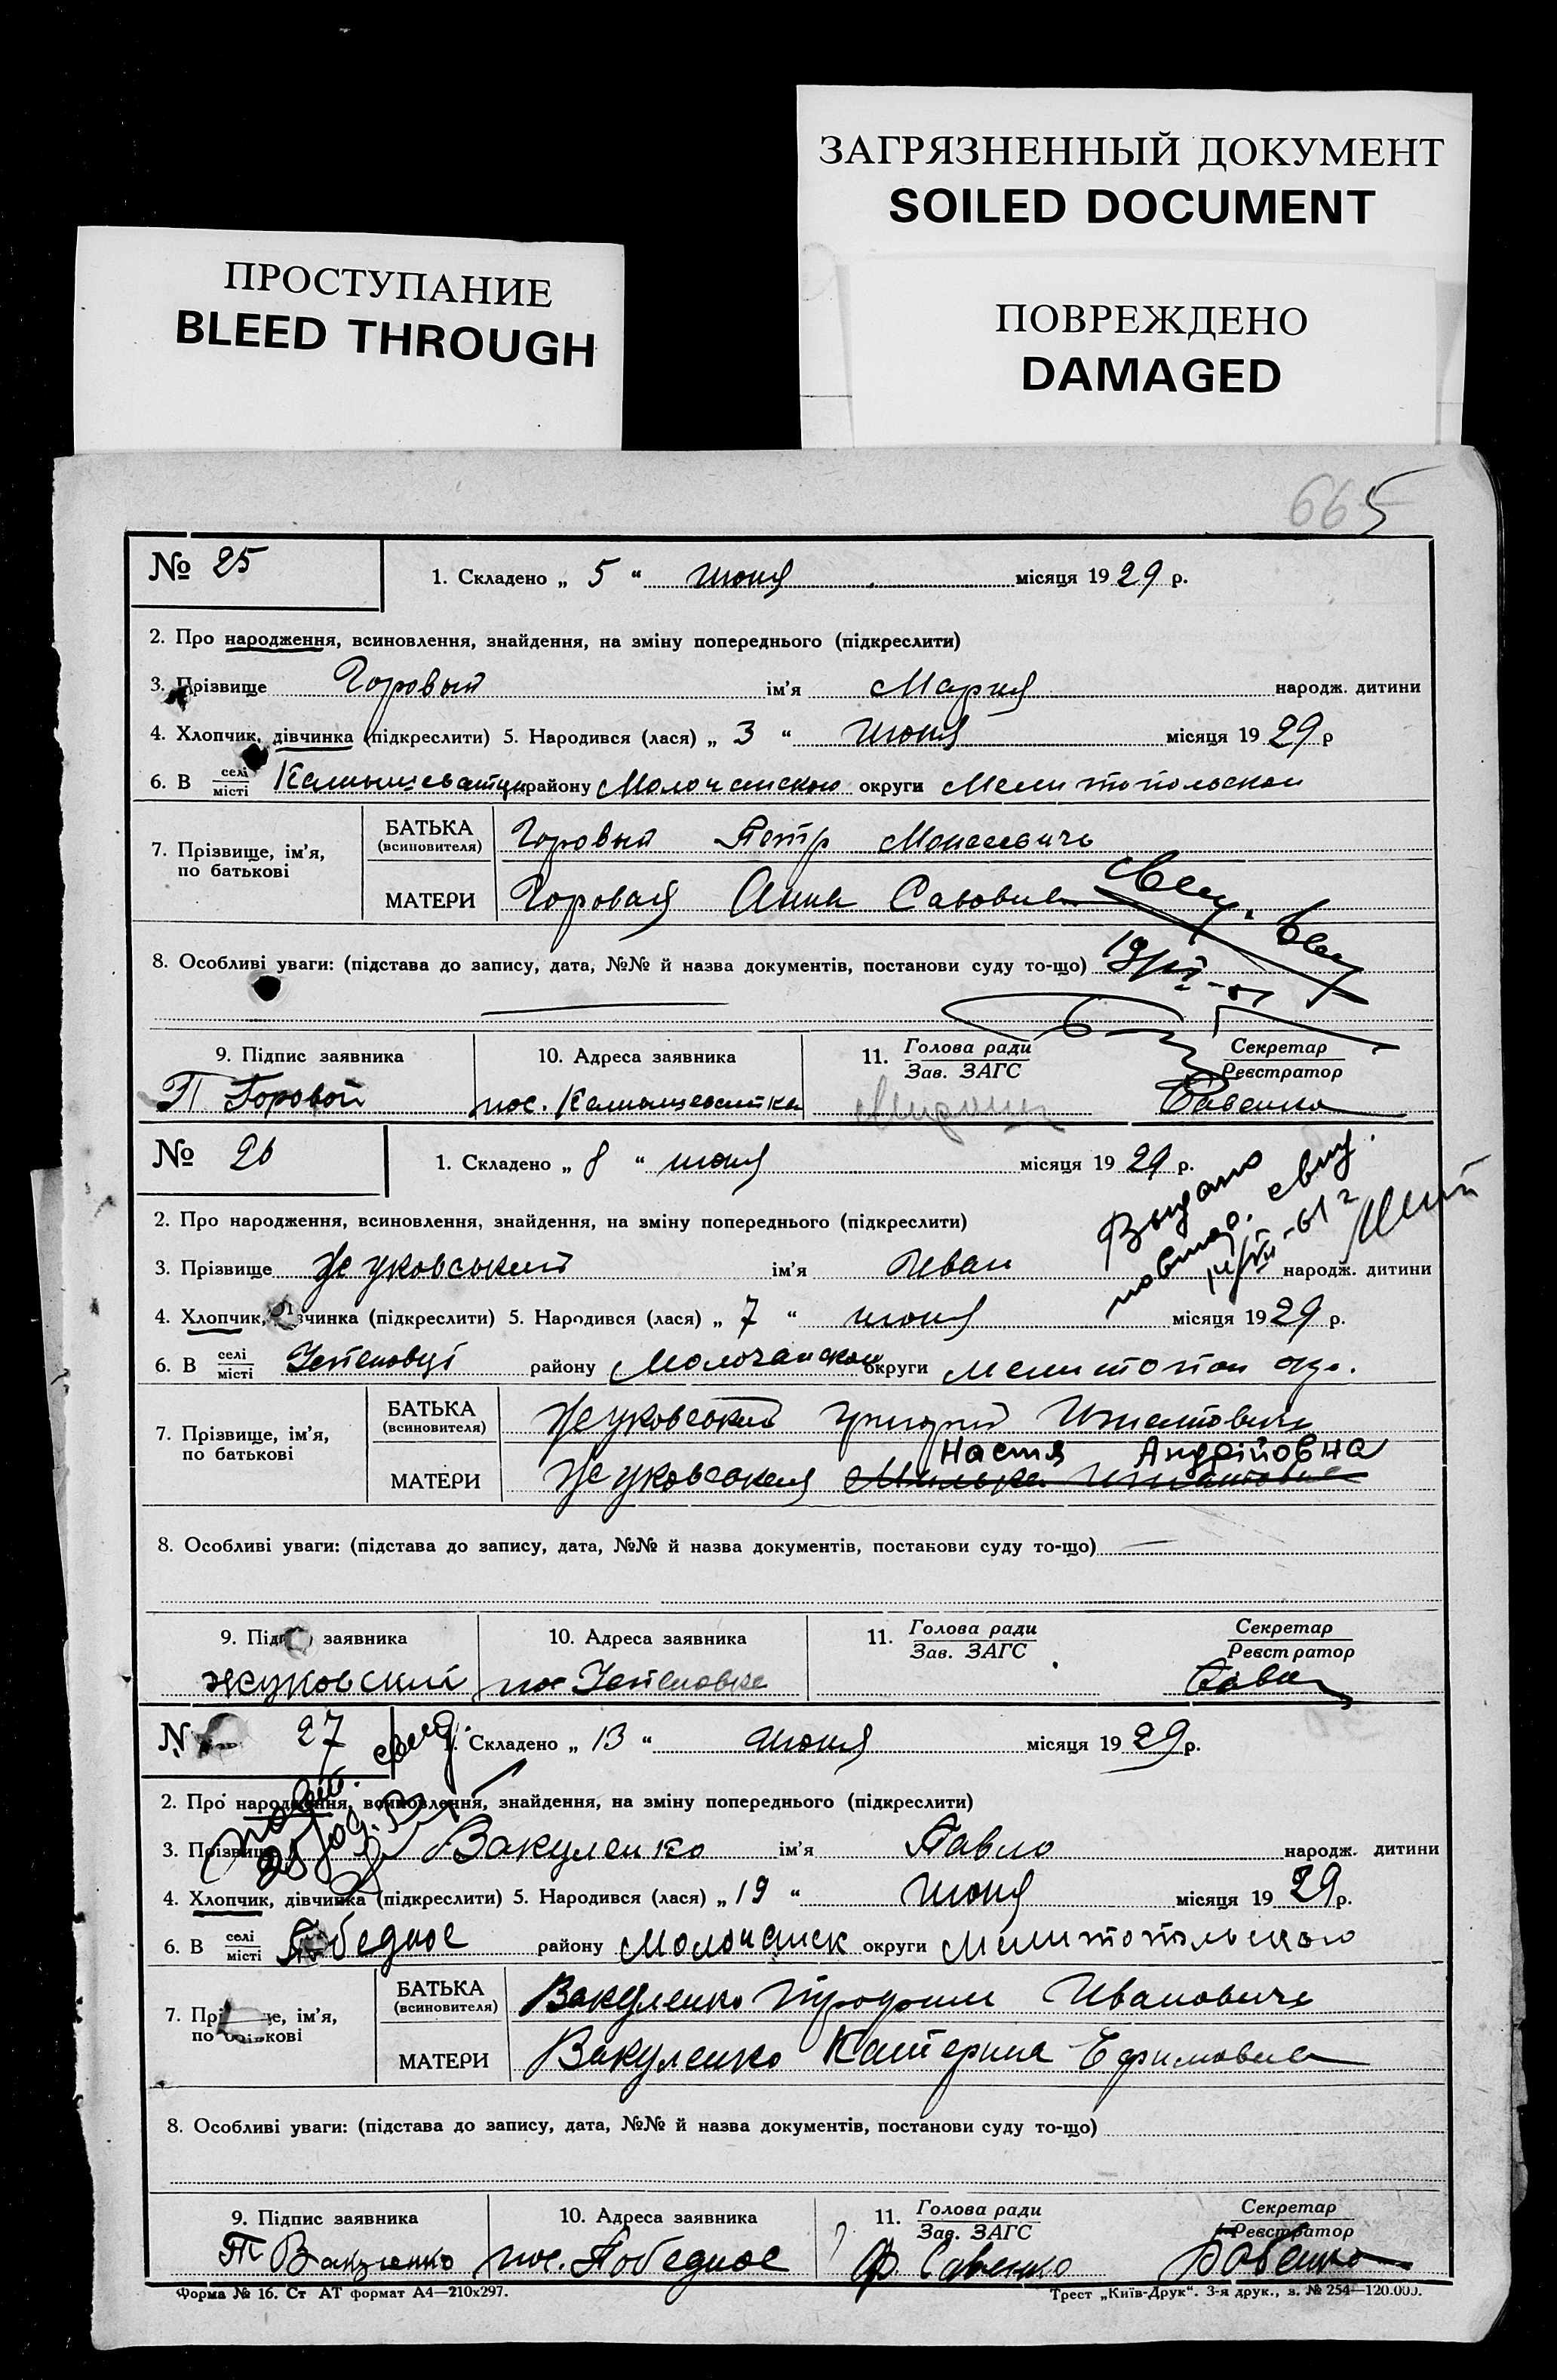 ЗАГРЯЗНЕННЫЙ ДОКУМЕНТ
SOILED DOCUMENT
ПРОСТУПАНИЕ
BLEED THROUGH
ПОВРЕЖДЕНО
DAMAGED
66 5
№ 25 1. Складено „ 5 “ июня місяця 1929 р.
2. Про народження, всиновлення, знайдення, на зміну попереднього (підкреслити)
3. Прізвище Горовый ім'я Мария народж. дитини
4. Хлопчик, дівчинка (підкреслити) 5. Народився (лася) „ 3 “ июня місяця 1929 р
6. В селі місті Камышеватци району Молочанского округи Мелитопольской
7. Прізвище, ім'я, по батькові
БАТЬКА (всиновителя) Горовый Петр Моисеевичь
МАТЕРИ Горовая Анна Савовна
8. Особливі уваги: (підстава до запису, дата, №№ й назва документів, постанови суду то-що)
9. Підпис заявника 10. Адреса заявника 11. Голова ради Зав. ЗАГС Секретар Реєстратор
П Горовой пос. Камышеватка Савенко
№ 26 1. Складено „ 8 “ июня місяця 1929 р.
Выдано повтор. свид.
2. Про народження, всиновлення, знайдення, на зміну попереднього (підкреслити)
3. Прізвище Жуковський ім'я Иван народж. дитини
4. Хлопчик, дівчинка (підкреслити) 5. Народився (лася) „ 7 “ июня місяця 1929 р.
6. В селі місті району Молочанской округи Мелитопол окр.
7. Прізвище, ім'я, по батькові
БАТЬКА (всиновителя) Жуковський Григорий Игнатовичь
Настя Андрійовна
МАТЕРИ Жуковская
8. Особливі уваги: (підстава до запису, дата, №№ й назва документів, постанови суду то-що)
9. Підпис заявника 10. Адреса заявника 11. Голова ради Зав. ЗАГС Секретар Реєстратор
жуковский пос Савен
№ 27 1. Складено „ 13 “ июня місяця 1929 р.
повт. свид.
2. Про народження, всиновлення, знайдення, на зміну попереднього (підкреслити)
3. Прізвище Вакуленко ім'я Павло народж. дитини
4. Хлопчик, дівчинка (підкреслити) 5. Народився (лася) „ 19 “ июня місяця 1929 р.
6. В селі місті Победное району Молочанск округи Мелитопольского
7. Прізвище, ім'я, по батькові
БАТЬКА (всиновителя) Вакуленко Трофим Ивановичь
МАТЕРИ Вакуленко Катерина Ефимовна
8. Особливі уваги: (підстава до запису, дата, №№ й назва документів, постанови суду то-що)
9. Підпис заявника 10. Адреса заявника 11. Голова ради Зав. ЗАГС Секретар Реєстратор
Т. Вакуленко пос. Победное Ф. Савенко Бабенко
Форма № 16. Ст АТ формат А4—210x297. Трест „Київ-Друк“. 3-я друк., з. № 254—120.000.